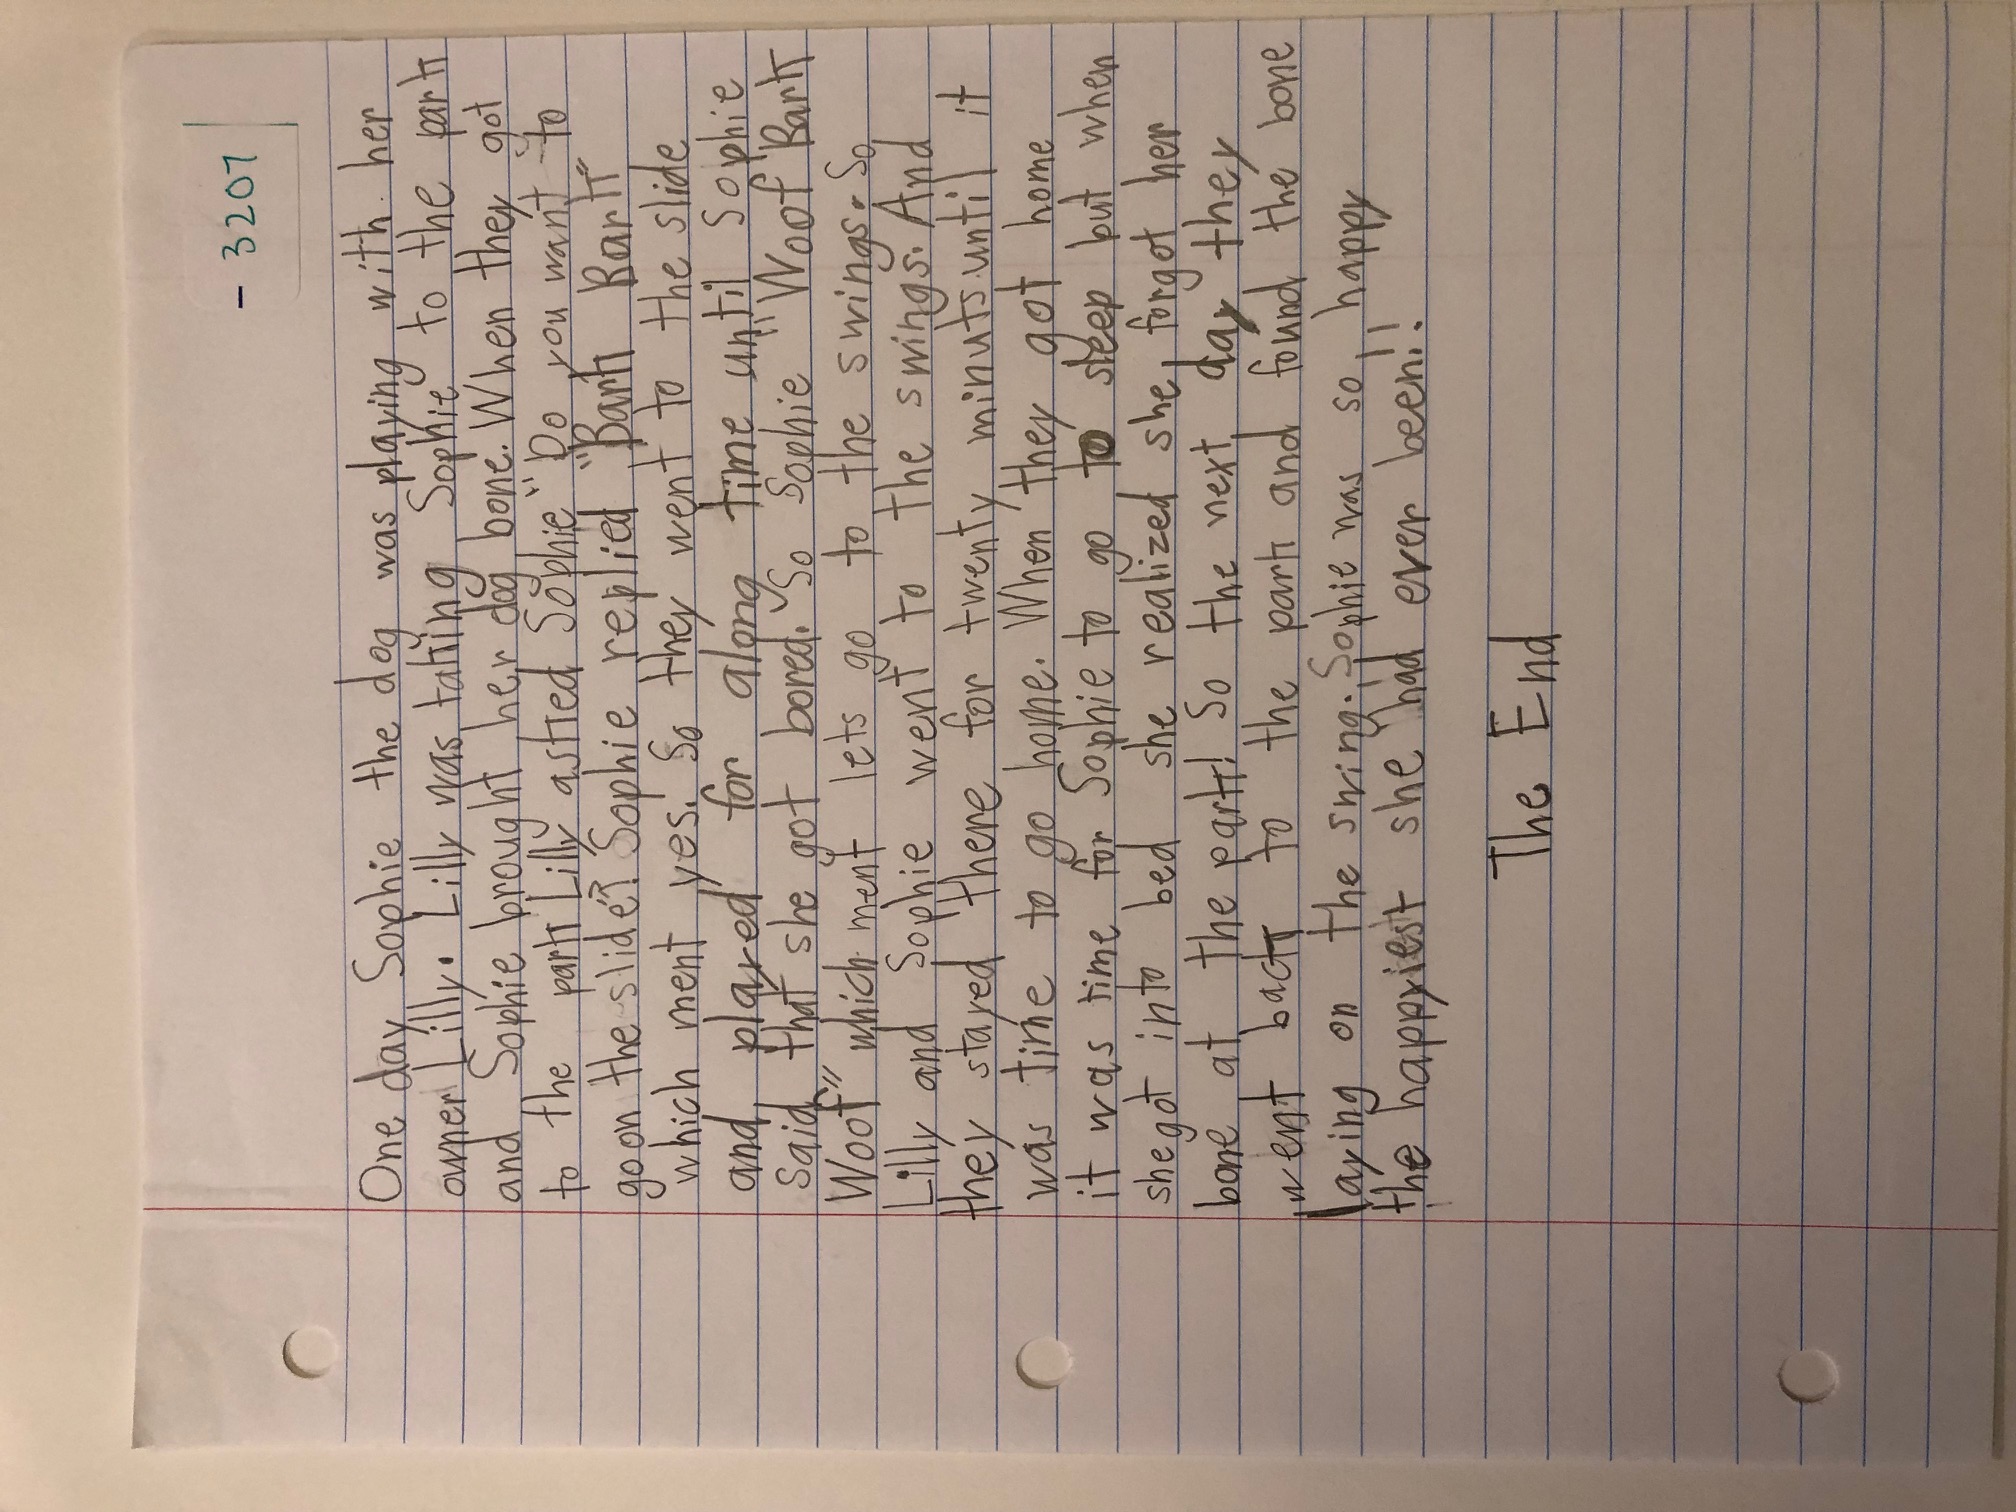 - 3207
One day Sophie the dog was playing with her
owner Lilly. Lilly was taking Sophie to the park
and Sophie brought her dog bone. When they got
to the park Lilly asked Sophie "Do you want to
go on the slide"? Sophie replied "Bark Bark"
which ment yes. So they went to the slide
and played for along time until Sophie
said that she got bored. So Sophie "Woof Bark
Woof" which ment lets go to the swings. So
Lilly and Sophie went to the swings. And
they stayed there for twenty minuts until it
was time to go home. When they got home
it was time for Sophie to go to sleep but when
she got into bed she realized she forgot her
bone at the park! So the next day they
went back to the park and found the bone
laying on the swing. Sophie was so happy
the happyiest she had ever been!!
The End